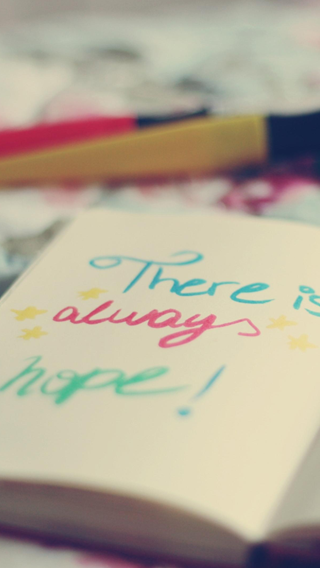 There is
always
hope!